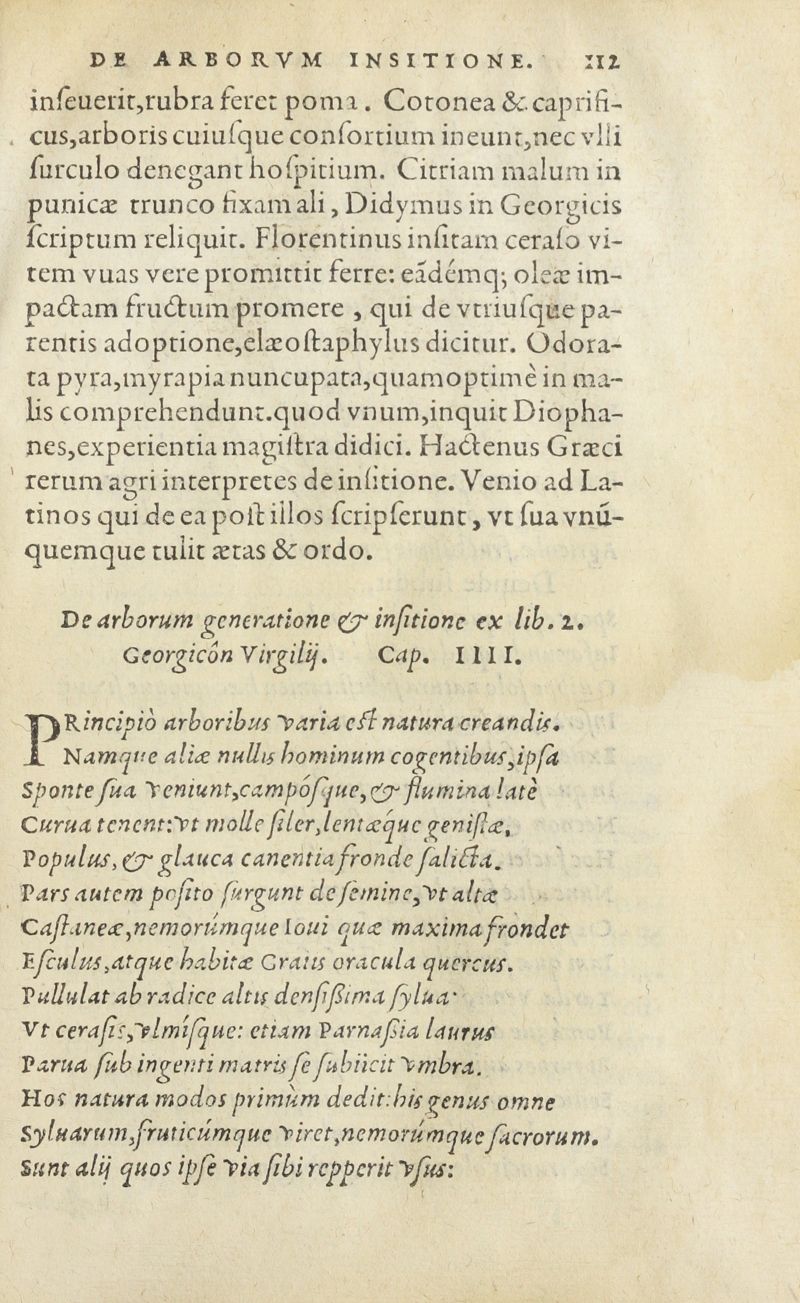 DE ARBORVM INSITIONE. 112
inſeuerit,rubra feret poma. Cotonea &.caprifi-
cus,arboris cuiuſque conſortium ineunt,nec vlli
ſurculo denegant hoſpitium. Citriam malum in
punicæ trunco fixam ali, Didymus in Georgicis
ſcriptum reliquit. Florentinus inſitam ceraſo vi-
tem vuas vere promittit ferre: eãdémq; oleæ im-
pactam fructum promere , qui de vtriuſque pa-
rentis adoptione,elæoſtaphylus dicitur. Odora-
ta pyra,myrapia nuncupata,quam optimè in ma-
lis comprehendunt.quod vnum,inquit Diopha-
nes,experientia magiſtra didici. Hactenus Græci
rerum agri interpretes de inſitione. Venio ad La-
tinos qui de ea poſt illos ſcripſerunt, vt ſua vnũ-
quemque tulit ætas & ordo.
De arborum generatione & inſitione ex lib. 2.
Georgicôn Virgilij. Cap. IIII.
PRincipiò arboribus varia eſt natura creandis.
Namque aliæ nullis hominum cogentibus,ipſa
Sponte ſua veniunt,campóſque,& flumina latè
Curua tenent:vt molle ſiler,lentæque geniſtæ,
Populus, & glauca canentia fronde ſalicta.
Pars autem poſito ſurgunt de ſemine,vt altæ
Caſtaneæ,nemorúmque Ioui quæ maxima frondet
Eſculus,atque habitæ Graiis oracula quercus.
Pullulat ab radice altis denſiſsima ſylua·
Vt ceraſis,vlmíſque: etiam Parnaſsia laurus
Parua ſub ingenti matris ſe ſubiicit vmbra.
Hos natura modos primùm dedit:his genus omne
Syluarum,fruticúmque viret,nemorúmque ſacrorum.
Sunt alij quos ipſe via ſibi repperit vſus: